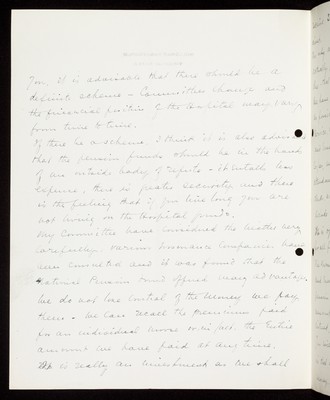 You, it is advisable that there should be a
definite scheme - Committees change and
the financial position of the Hospital may vary
from time to time.
If there be a scheme I think it is also advis
that the pension funds should be in the hands
of an outside body of experts - it entails less
expense, there is greater security and there
is the feeling that if you live long you are
not living on the Hospital funds.
My Committee have considered the matter very
carefully. Various Insurance Companies have
been consulted and it was found that the
National Pension Fund offered many advantages
We do not lose control of the money we pay
them - We can recall the premiums paid
for an individual nurse or in fact the entire
amount we have paid at any time.
It is really an investment as we shall